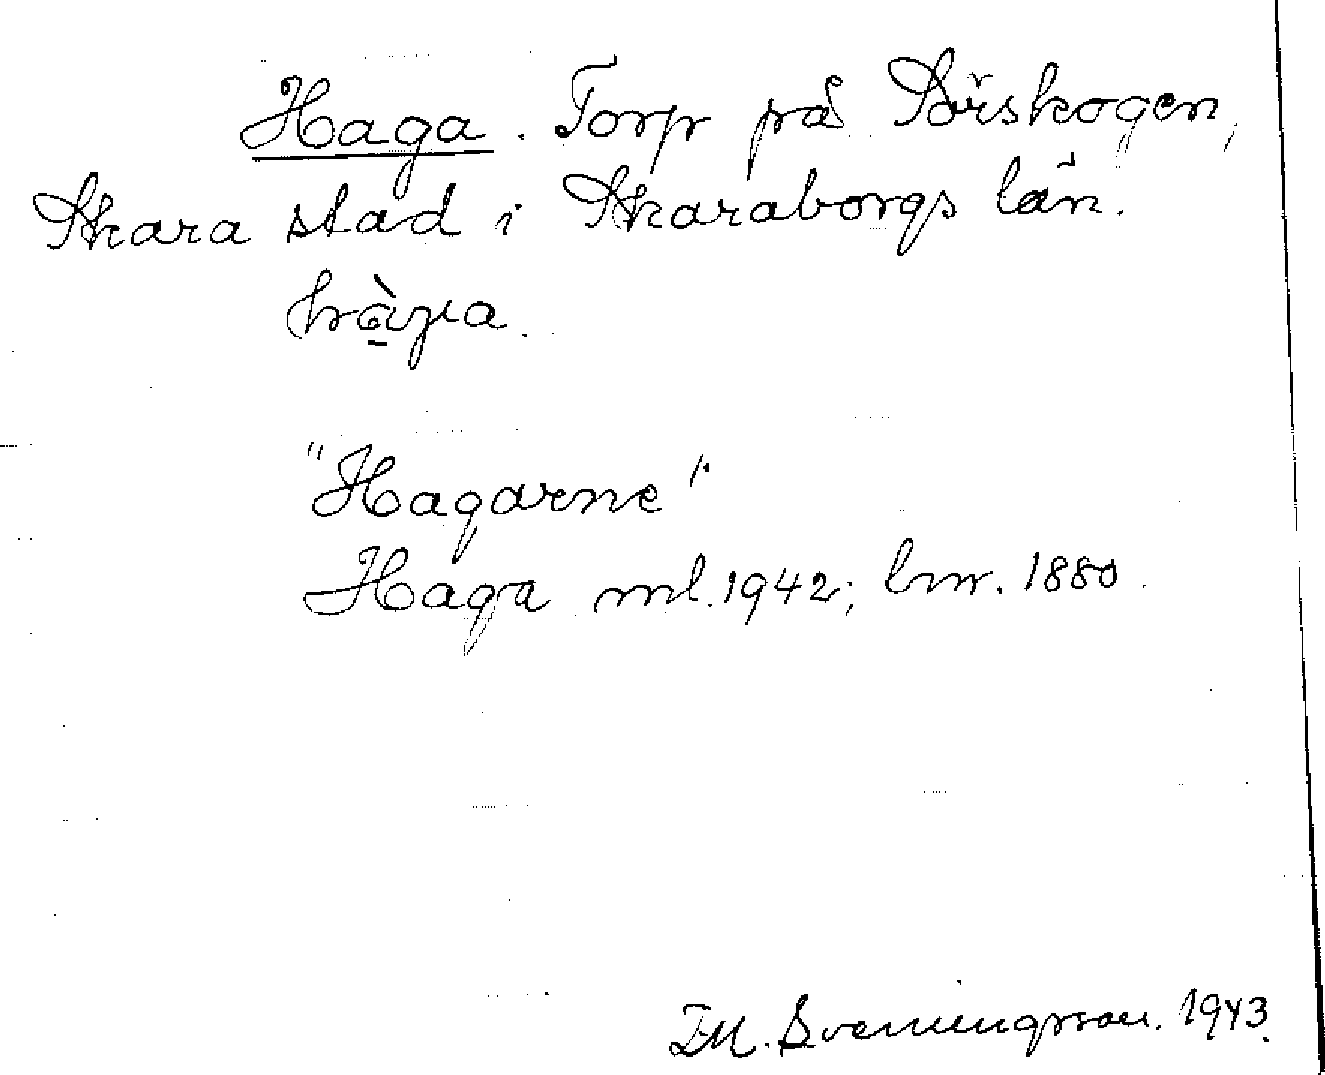 Haga. Torp på Sörskogen,
Skara stad i Skaraborgs län.
"Hagarne"
Haga ml. 1942; lmr. 1880.
I.M. Svenningsson. 1943.